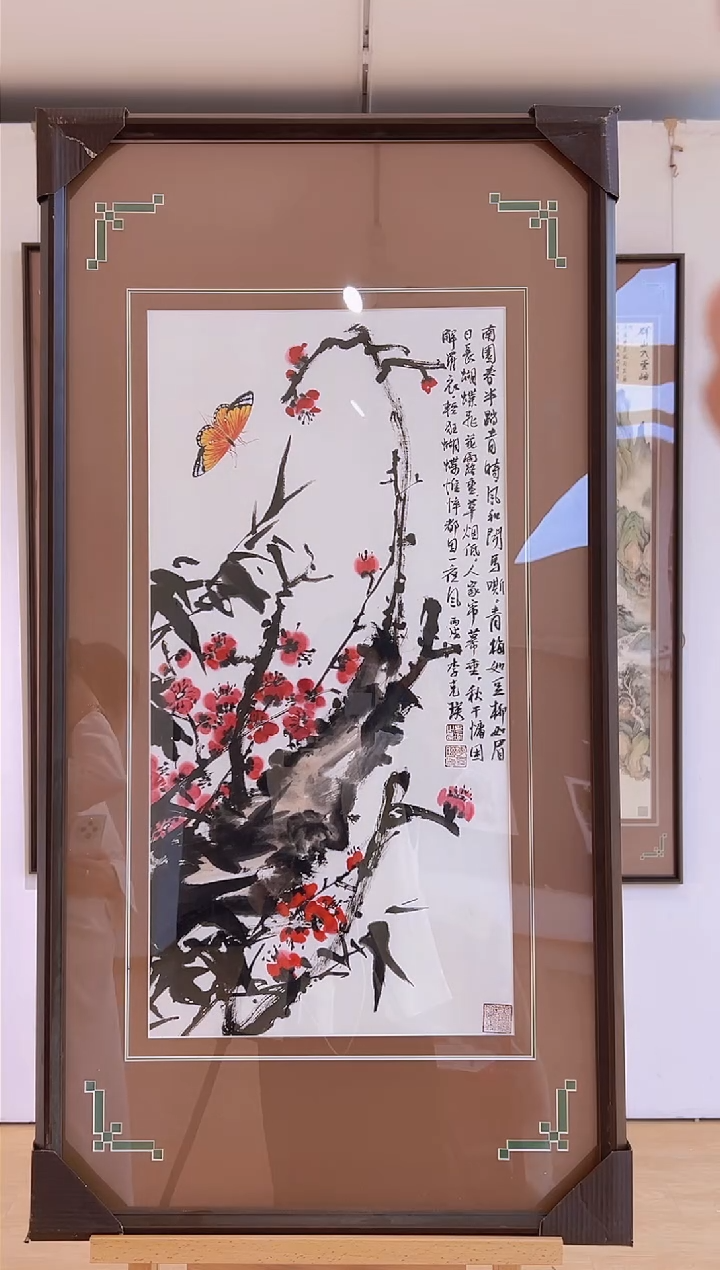 南園春半踏青時风和闻馬嘶青梅如豆柳如眉
日長蝴蝶飛花露重草烟低人家帘幕垂秋千慵困
解罗衣轻狂蝴蝶憔悴都因一夜风 李克瑛